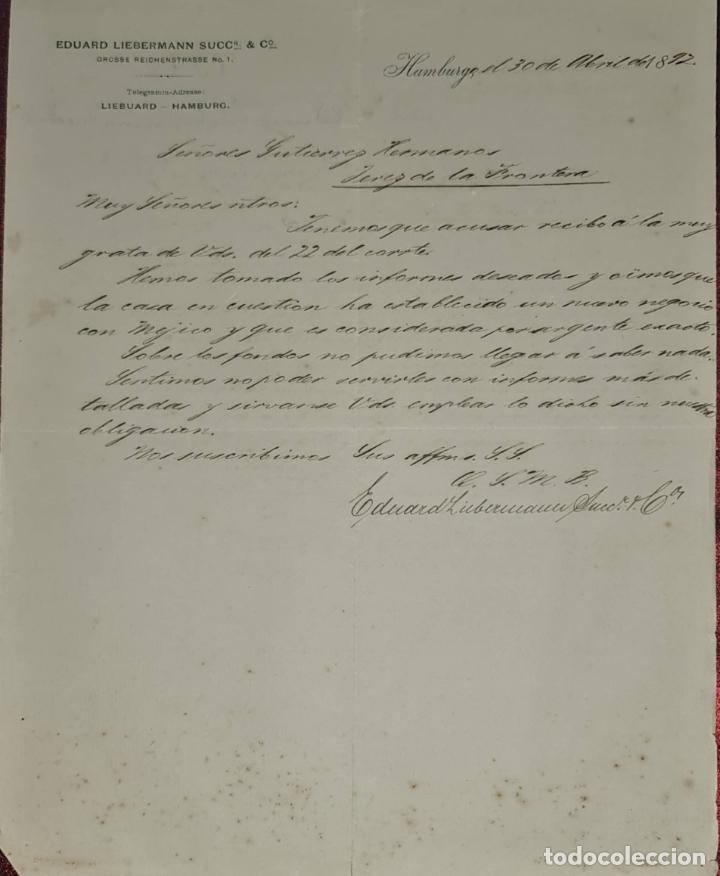 EDUARD LIEBERMANN SUCCR. & CO.
GROSSE REICHENSTRASSE No. 1.
Telegramm-Adresse:
LIEBUARD - HAMBURG.
Hamburgo, el 30 de Abril de 1892.
Señores Gutierrez Hermanos
Jerez de la Frontera
Muy Señores ntros:
Tenemos que acusar recibo á la muy
grata de Vds. del 22 del corrte.
Hemos tomado los informes deseados y oimos que
la casa en cuestion ha establecido un nuevo negocio
con Mejico y que es considerada por argente exacto.
Sobre los fondos no pudimos llegar á saber nada.
Sentimos no poder servirles con informes mas de-
tallada y sirvanse Vds. emplear lo dicho sin nuestra
obligacion.
Nos suscribimos Sus affms. S. S.
Q. S. M. B.
Eduard Liebermann Succr. & Co.
todocoleccion
todocoleccion.net